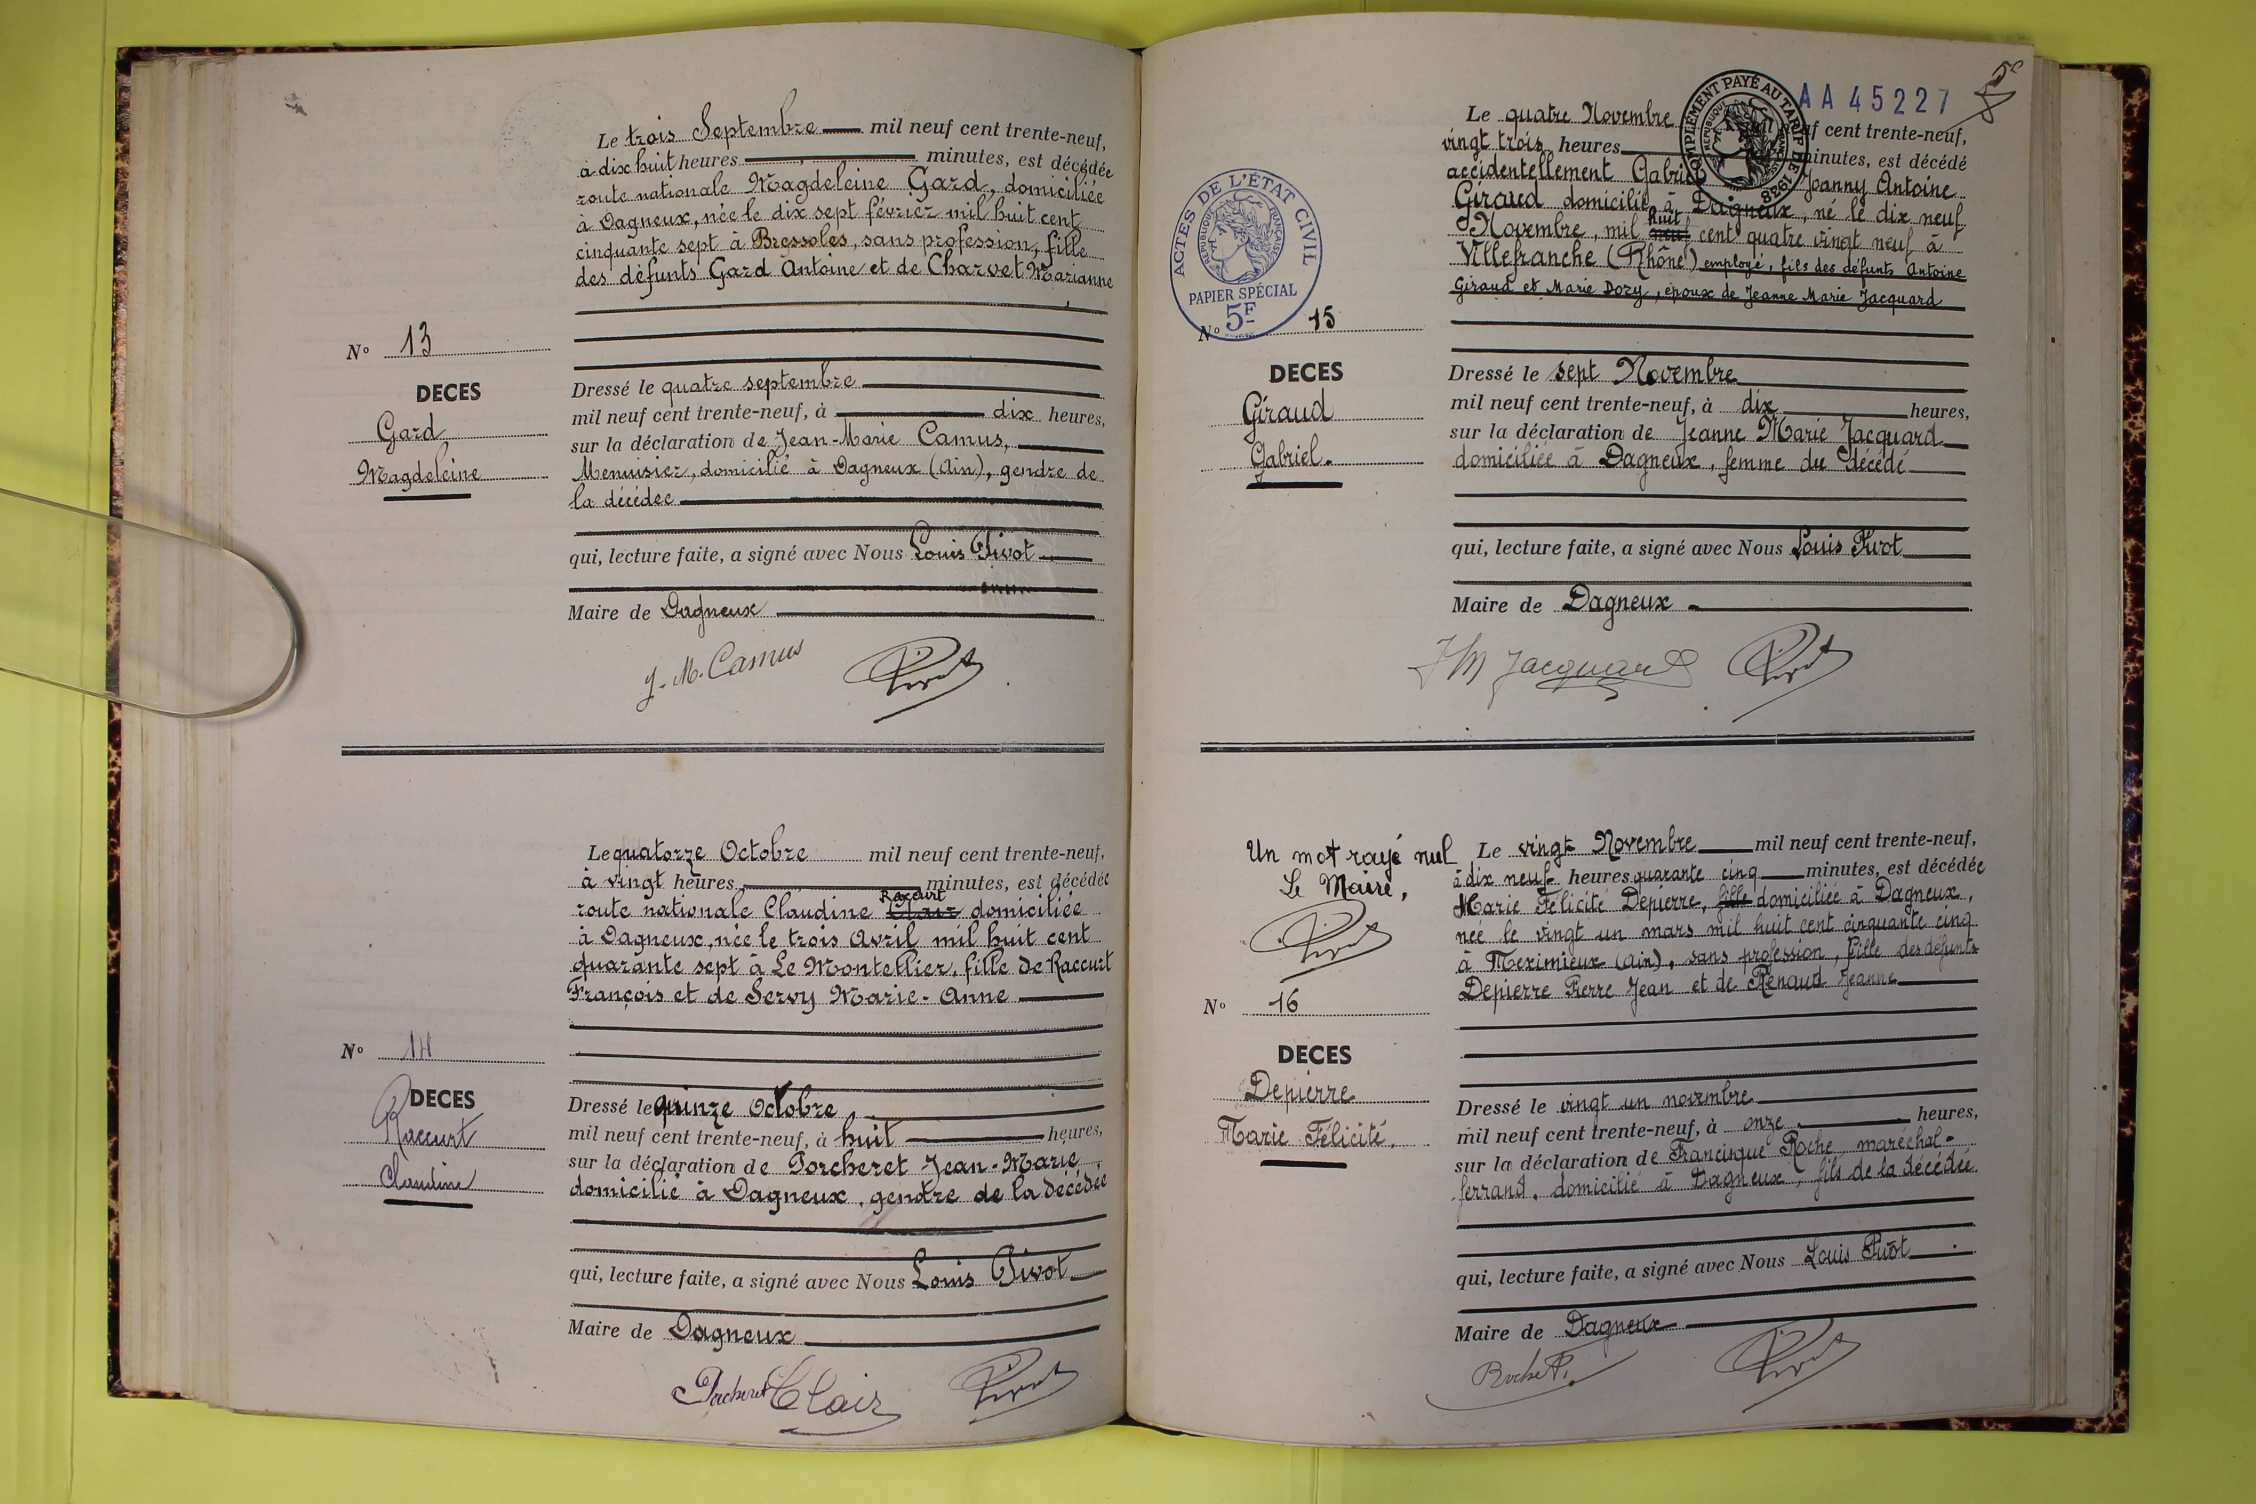 Le trois Septembre mil neuf cent trente-neuf,
à dix huit heures minutes, est décédée
route nationale Magdeleine Gard, domiciliée
à Dagneux, née le dix sept février mil huit cent
cinquante sept à Bressoles, sans profession, fille
des défunts Gard Antoine et de Charvet Marianne
N° 13
DECES
Gard
Magdeleine
Dressé le quatre septembre
mil neuf cent trente-neuf, à dix heures,
sur la déclaration de Jean-Marie Camus,
Menusier, domicilié à Dagneux (Ain), gendre de
la décédée
qui, lecture faite, a signé avec Nous Louis Pivot
Maire de Dagneux
J. M. Camus Pivot
Le quatorze Octobre mil neuf cent trente-neuf,
à vingt heures minutes, est décédée
Raccurt
route nationale Claudine Clair domiciliée
à Dagneux, née le trois Avril mil huit cent
quarante sept à Le Montellier, fille de Raccurt
François et de Servy Marie-Anne
N° 14
DECES
Raccurt
Claudine
Dressé le quinze Octobre
mil neuf cent trente-neuf, à huit heures,
sur la déclaration de Porcheret Jean-Marie
domicilié à Dagneux, gendre de la décédée
qui, lecture faite, a signé avec Nous Louis Pivot
Maire de Dagneux
Porcheret Clair Pivot
AA 45227
COMPLÉMENT PAYÉ AU TARIF DE 1938
RÉPUBLIQUE FRANÇAISE
Le quatre Novembre mil neuf cent trente-neuf,
vingt trois heures minutes, est décédé
accidentellement Gabriel Joanny Antoine
Giraud domicilié à Dagneux, né le dix neuf
huit
Novembre, mil neuf cent quatre vingt neuf à
Villefranche (Rhône) employé, fils des défunts Antoine
Giraud et Marie Dozy, époux de Jeanne Marie Jacquard
ACTES DE L'ÉTAT CIVIL
RÉPUBLIQUE FRANÇAISE
PAPIER SPÉCIAL
5F
N° 15
DECES
Giraud
Gabriel.
Dressé le sept Novembre
mil neuf cent trente-neuf, à dix heures,
sur la déclaration de Jeanne Marie Jacquard
domiciliée à Dagneux, femme du décédé
qui, lecture faite, a signé avec Nous Louis Pivot
Maire de Dagneux
JM Jacquard Pivot
Un mot rayé nul
Le Maire,
Pivot
Le vingt Novembre mil neuf cent trente-neuf,
à dix neuf heures quarante cinq minutes, est décédée
Marie Félicité Depierre, fille domiciliée à Dagneux,
née le vingt un mars mil huit cent cinquante cinq
à Meximieux (Ain), sans profession, fille des défunts
Depierre Pierre Jean et de Renaud Jeanne
N° 16
DECES
Depierre
Marie Félicité.
Dressé le vingt un novembre
mil neuf cent trente-neuf, à onze heures,
sur la déclaration de Francisque Roche, maréchal-
ferrand, domicilié à Dagneux, fils de la décédée
qui, lecture faite, a signé avec Nous Louis Pivot
Maire de Dagneux
Roche F. Pivot